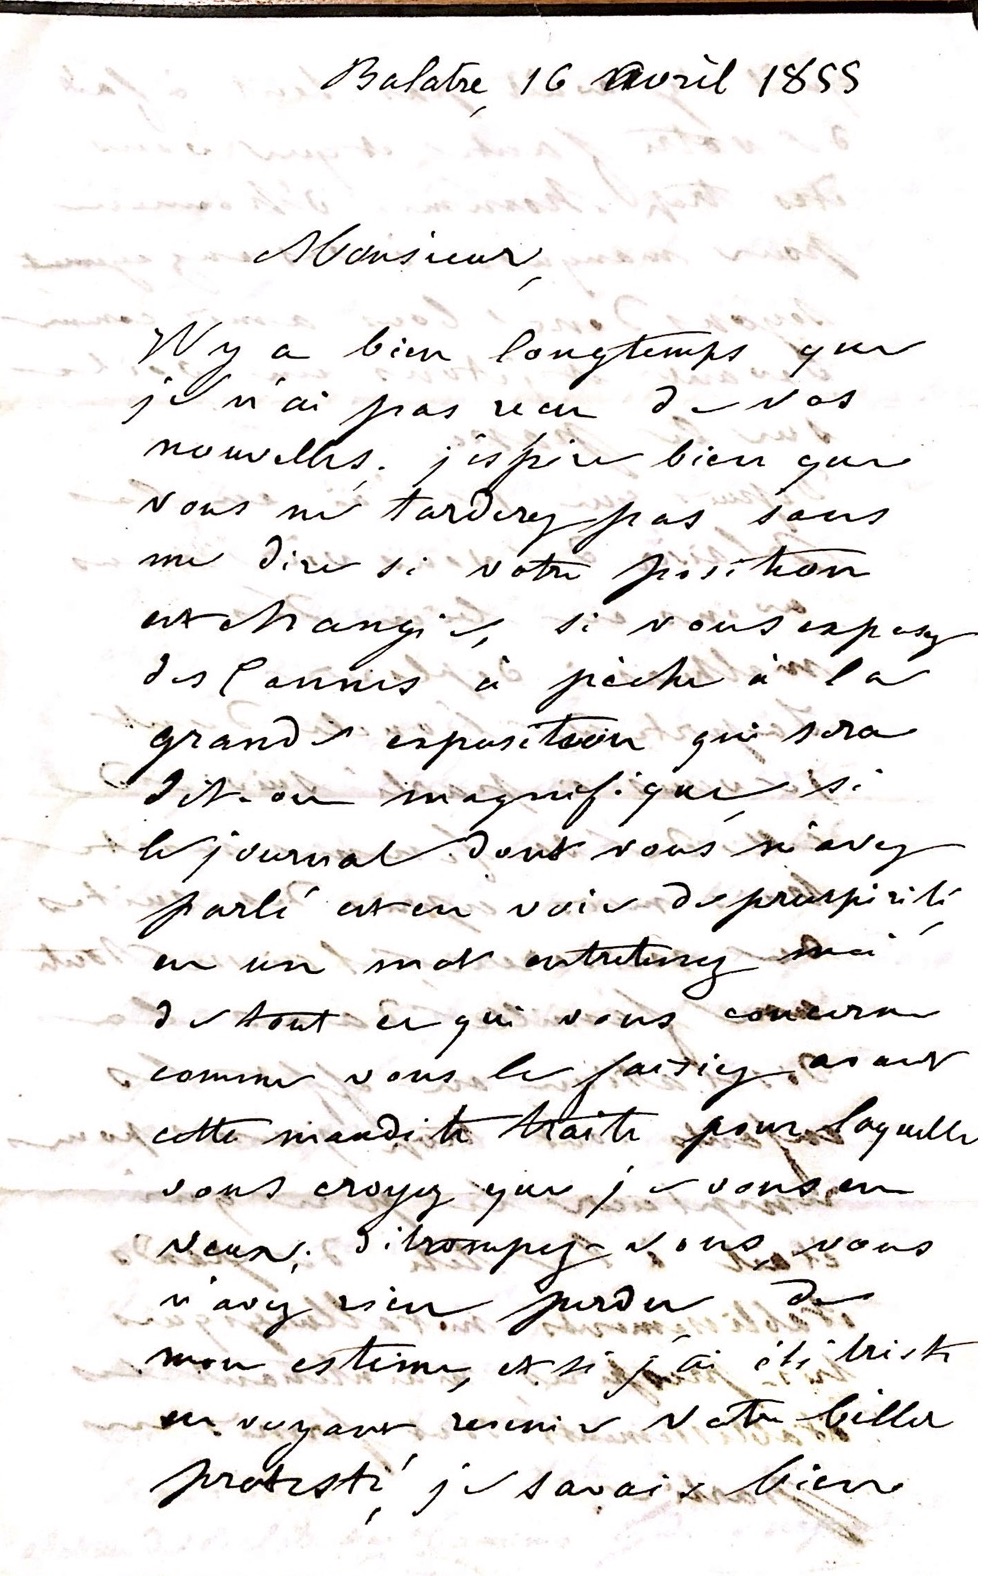 Balatre, 16 avril 1855
Monsieur,
Il y a bien longtemps que
je n'ai pas recu de vos
nouvelles. j'espère bien que
vous ne tarderez pas sans
me dire si votre position
est changée, si vous exposez
des Cannes à pèche à la
grande exposition qui sera
dit-on magnifique, si
le journal dont vous m'avez
parlé est en voie de prospérité,
en un mot entretenez moi
de tout ce qui vous concerne
comme vous le faisiez avant
cette maudite traite pour laquelle
vous croyez que je vous en
veux; détrompez-vous, vous
n'avez rien perdu de
mon estime, et si j'ai été triste
en voyant revenir votre billet
protesté, je savais bien